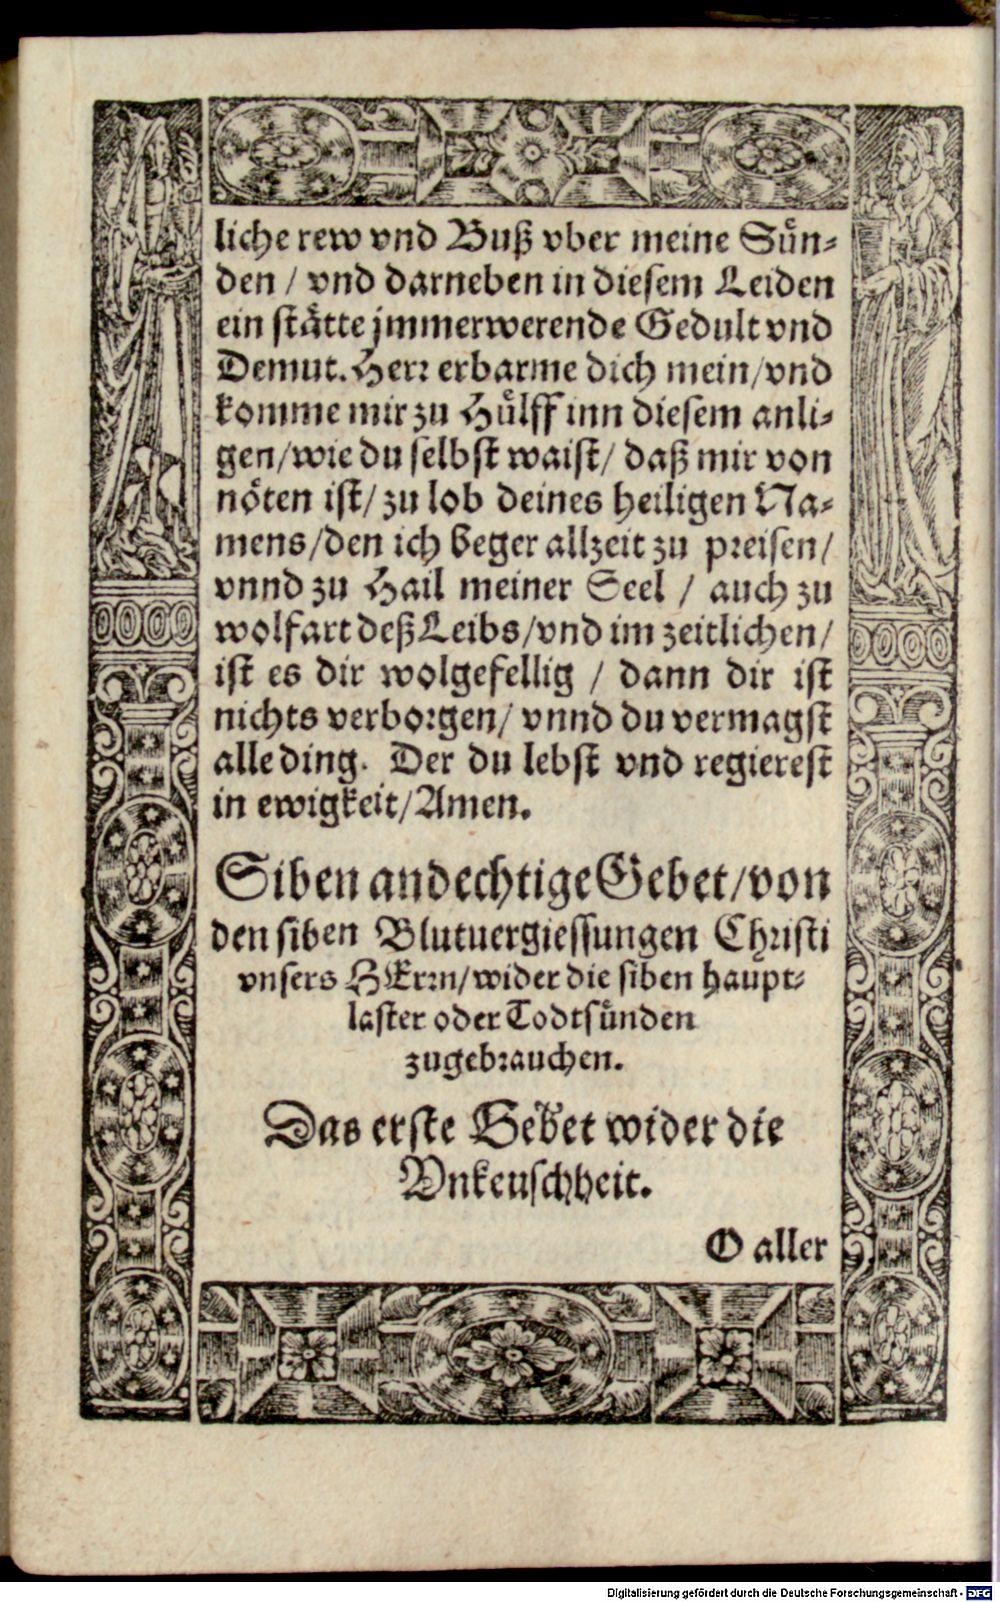 liche rew vnd Buß vber meine Sün-
den / vnd darneben in diesem Leiden
ein stätte jmmerwerende Gedult vnd
Demut. Herr erbarme dich mein/vnd
komme mir zu Hülff inn diesem anli-
gen/wie du selbst waist/ daß mir von
nöten ist/ zu lob deines heiligen Na-
mens/den ich beger allzeit zu preisen/
vnnd zu Hail meiner Seel / auch zu
wolfart deß Leibs/vnd im zeitlichen/
ist es dir wolgefellig / dann dir ist
nichts verborgen/ vnnd du vermagst
alle ding. Der du lebst vnd regierest
in ewigkeit/Amen.
Siben andechtige Gebet/von
den siben Blutuergiessungen Christi
vnsers HErrn/wider die siben haupt-
laster oder Todtsünden
zugebrauchen.
Das erste Gebet wider die
Vnkeuschheit.
O aller
Digitalisierung gefördert durch die Deutsche Forschungsgemeinschaft - DFG